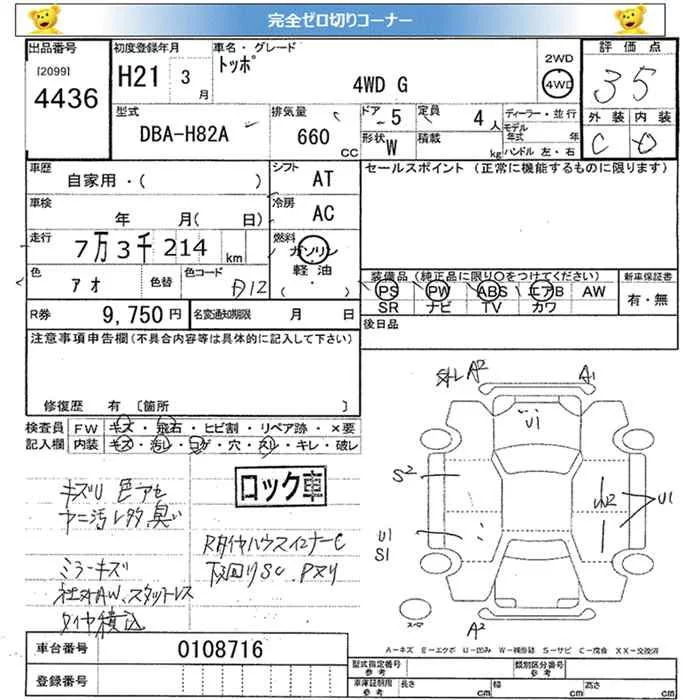 完全ゼロ切りコーナー
出品番号
[2099]
4436
初度登録年月
H21 3
月
車名・グレード
トッポ
4WD G
2WD
4WD
評価点
3 5
外装 内装
C D
型式
DBA-H82A
排気量
660
CC
ドア
5
定員
4
人
形状
W
積載
kg
ディーラー・並行
モデル
年式 年
ハンドル 左・右
車歴
自家用・( )
シフト
AT
セールスポイント (正常に機能するものに限ります)
車検
年 月( 日)
冷房
AC
走行
7万3千214 km
燃料
ガソリン
軽油
( ・ )
色
アオ
色替
色コード
D12
装備品 (純正品に限り○をつけてください)
PS PW ABS エアB AW
SR ナビ TV カワ
新車保証書
有・無
R券
9,750 円
名変通知期限
月 日
後日品
注意事項申告欄(不具合内容等は具体的に記入して下さい)
修復歴 有 〔箇所 〕
検査員
記入欄
FW キズ・飛石・ヒビ割・リペア跡・×要
内装 キズ・汚レ・コゲ・穴・スリ・キレ・破レ
外レ A2
A1
U1
S2
W2
U1
U1
S1
A2
キズU 色アセ
ヤニ汚レ多、臭い
ロック車
RタイヤハウスインナーC
下回りSC.Pヌリ
ミラーキズ
社外AW、スタットレス
タイヤ積込
スペア
A-キズ E-エクボ U-凹み W-補修跡 S-サビ C-腐食 XX-交換済
車台番号
0108716
登録番号
型式指定番号
参考
類別区分番号
参考
車庫証明用
参考
長さ cm
幅 cm
高さ cm